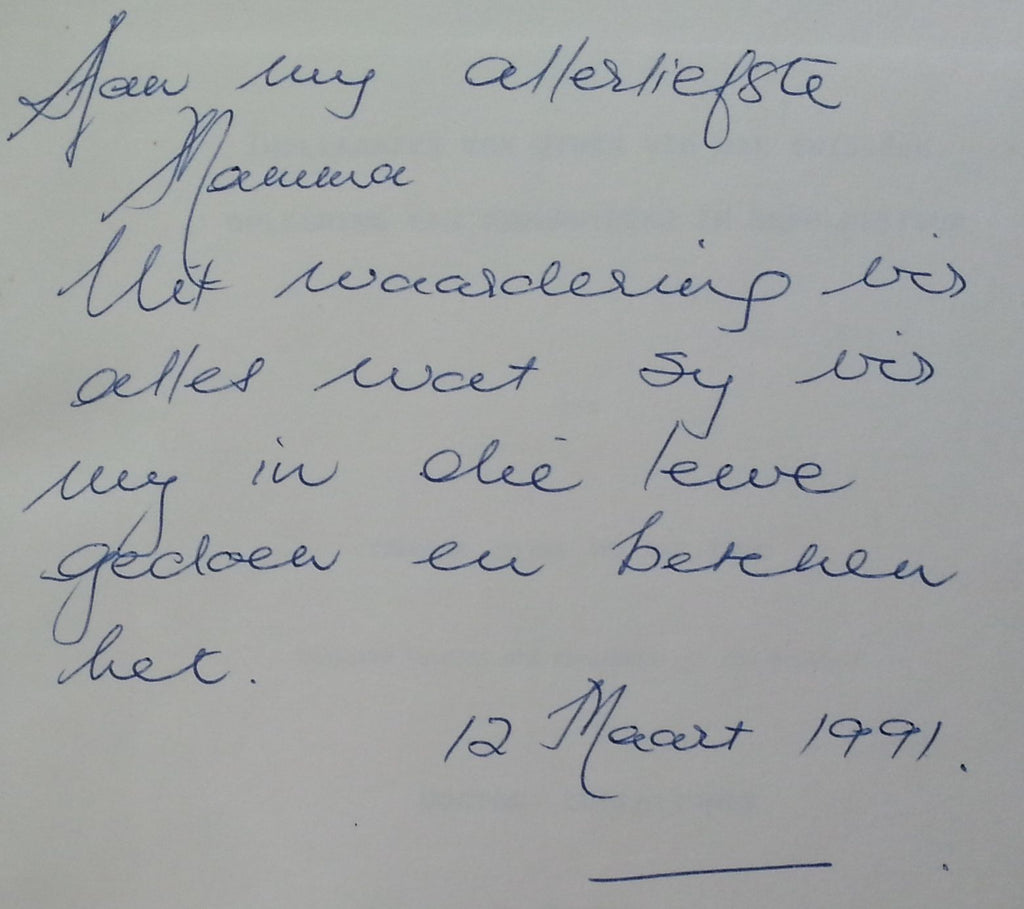 Aan my allerliefste
Mamma
Uit waardering vir
alles wat sy vir
my in die lewe
gedoen en beteken
het.
12 Maart 1991.